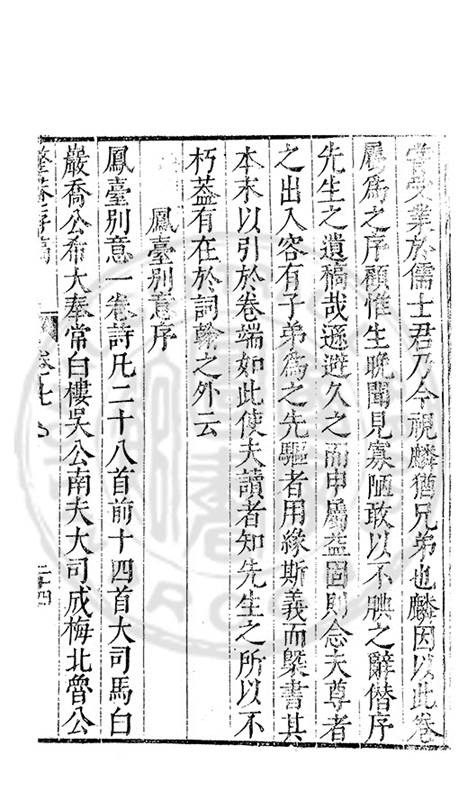 嘗受業於儒士君乃今視麟猶兄弟也麟因以此卷
屬為之序顧惟生晚聞見寡陋敢以不腆之辭僭序
先生之遺稿哉遜避久之而申屬益固則念夫尊者
之出入容有子弟為之先驅者用緣斯義而槩書其
本末以引於卷端如此使夫讀者知先生之所以不
朽葢有在於詞翰之外云
鳳臺別意序
鳳臺別意一卷詩凡二十八首前十四首大司馬白
巖喬公希大奉常白樓吳公南夫大司成梅北魯公
存稿
卷七
二十四